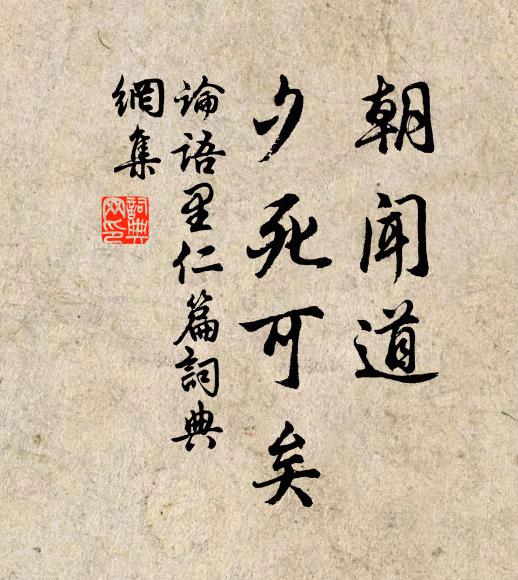 朝闻道
夕死可矣
論語里仁篇詞典
網集
詞典
网印